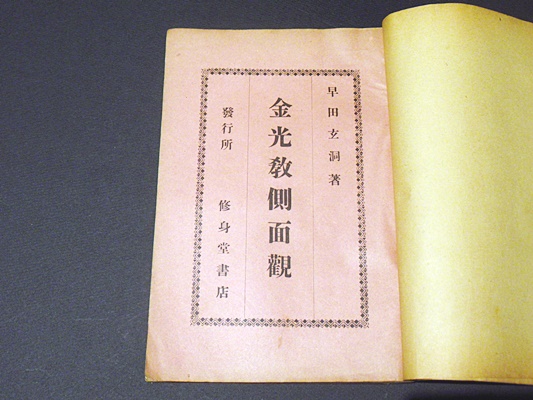 早田玄洞著
金光敎側面觀
發行所 修身堂書店